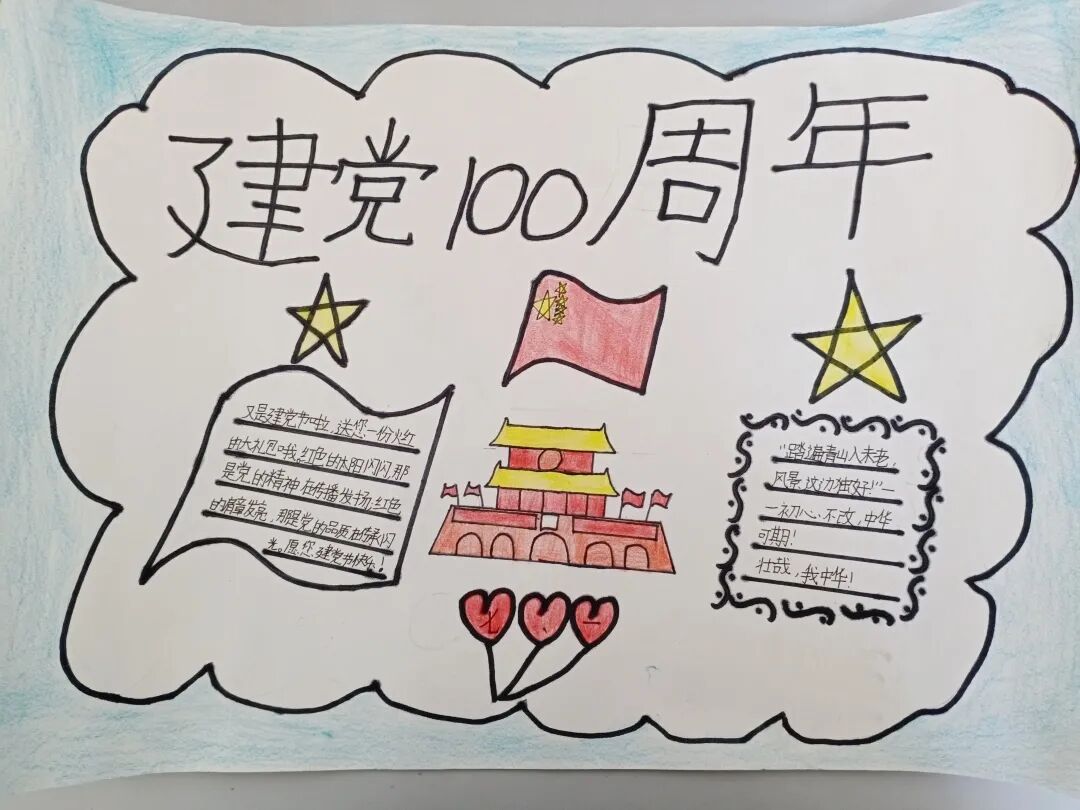 建党100周年
又是建党节啦,送您一份火红
的大礼包哦,红色的太阳闪闪,那
是党的精神在传播发扬,红色
的臂章发亮,那是党的品质在传承闪
光。愿您建党节快乐!
“踏遍青山人未老,
风景这边独好!”一
一初心不改,中华
可期!
壮哉,我中华!
七、一